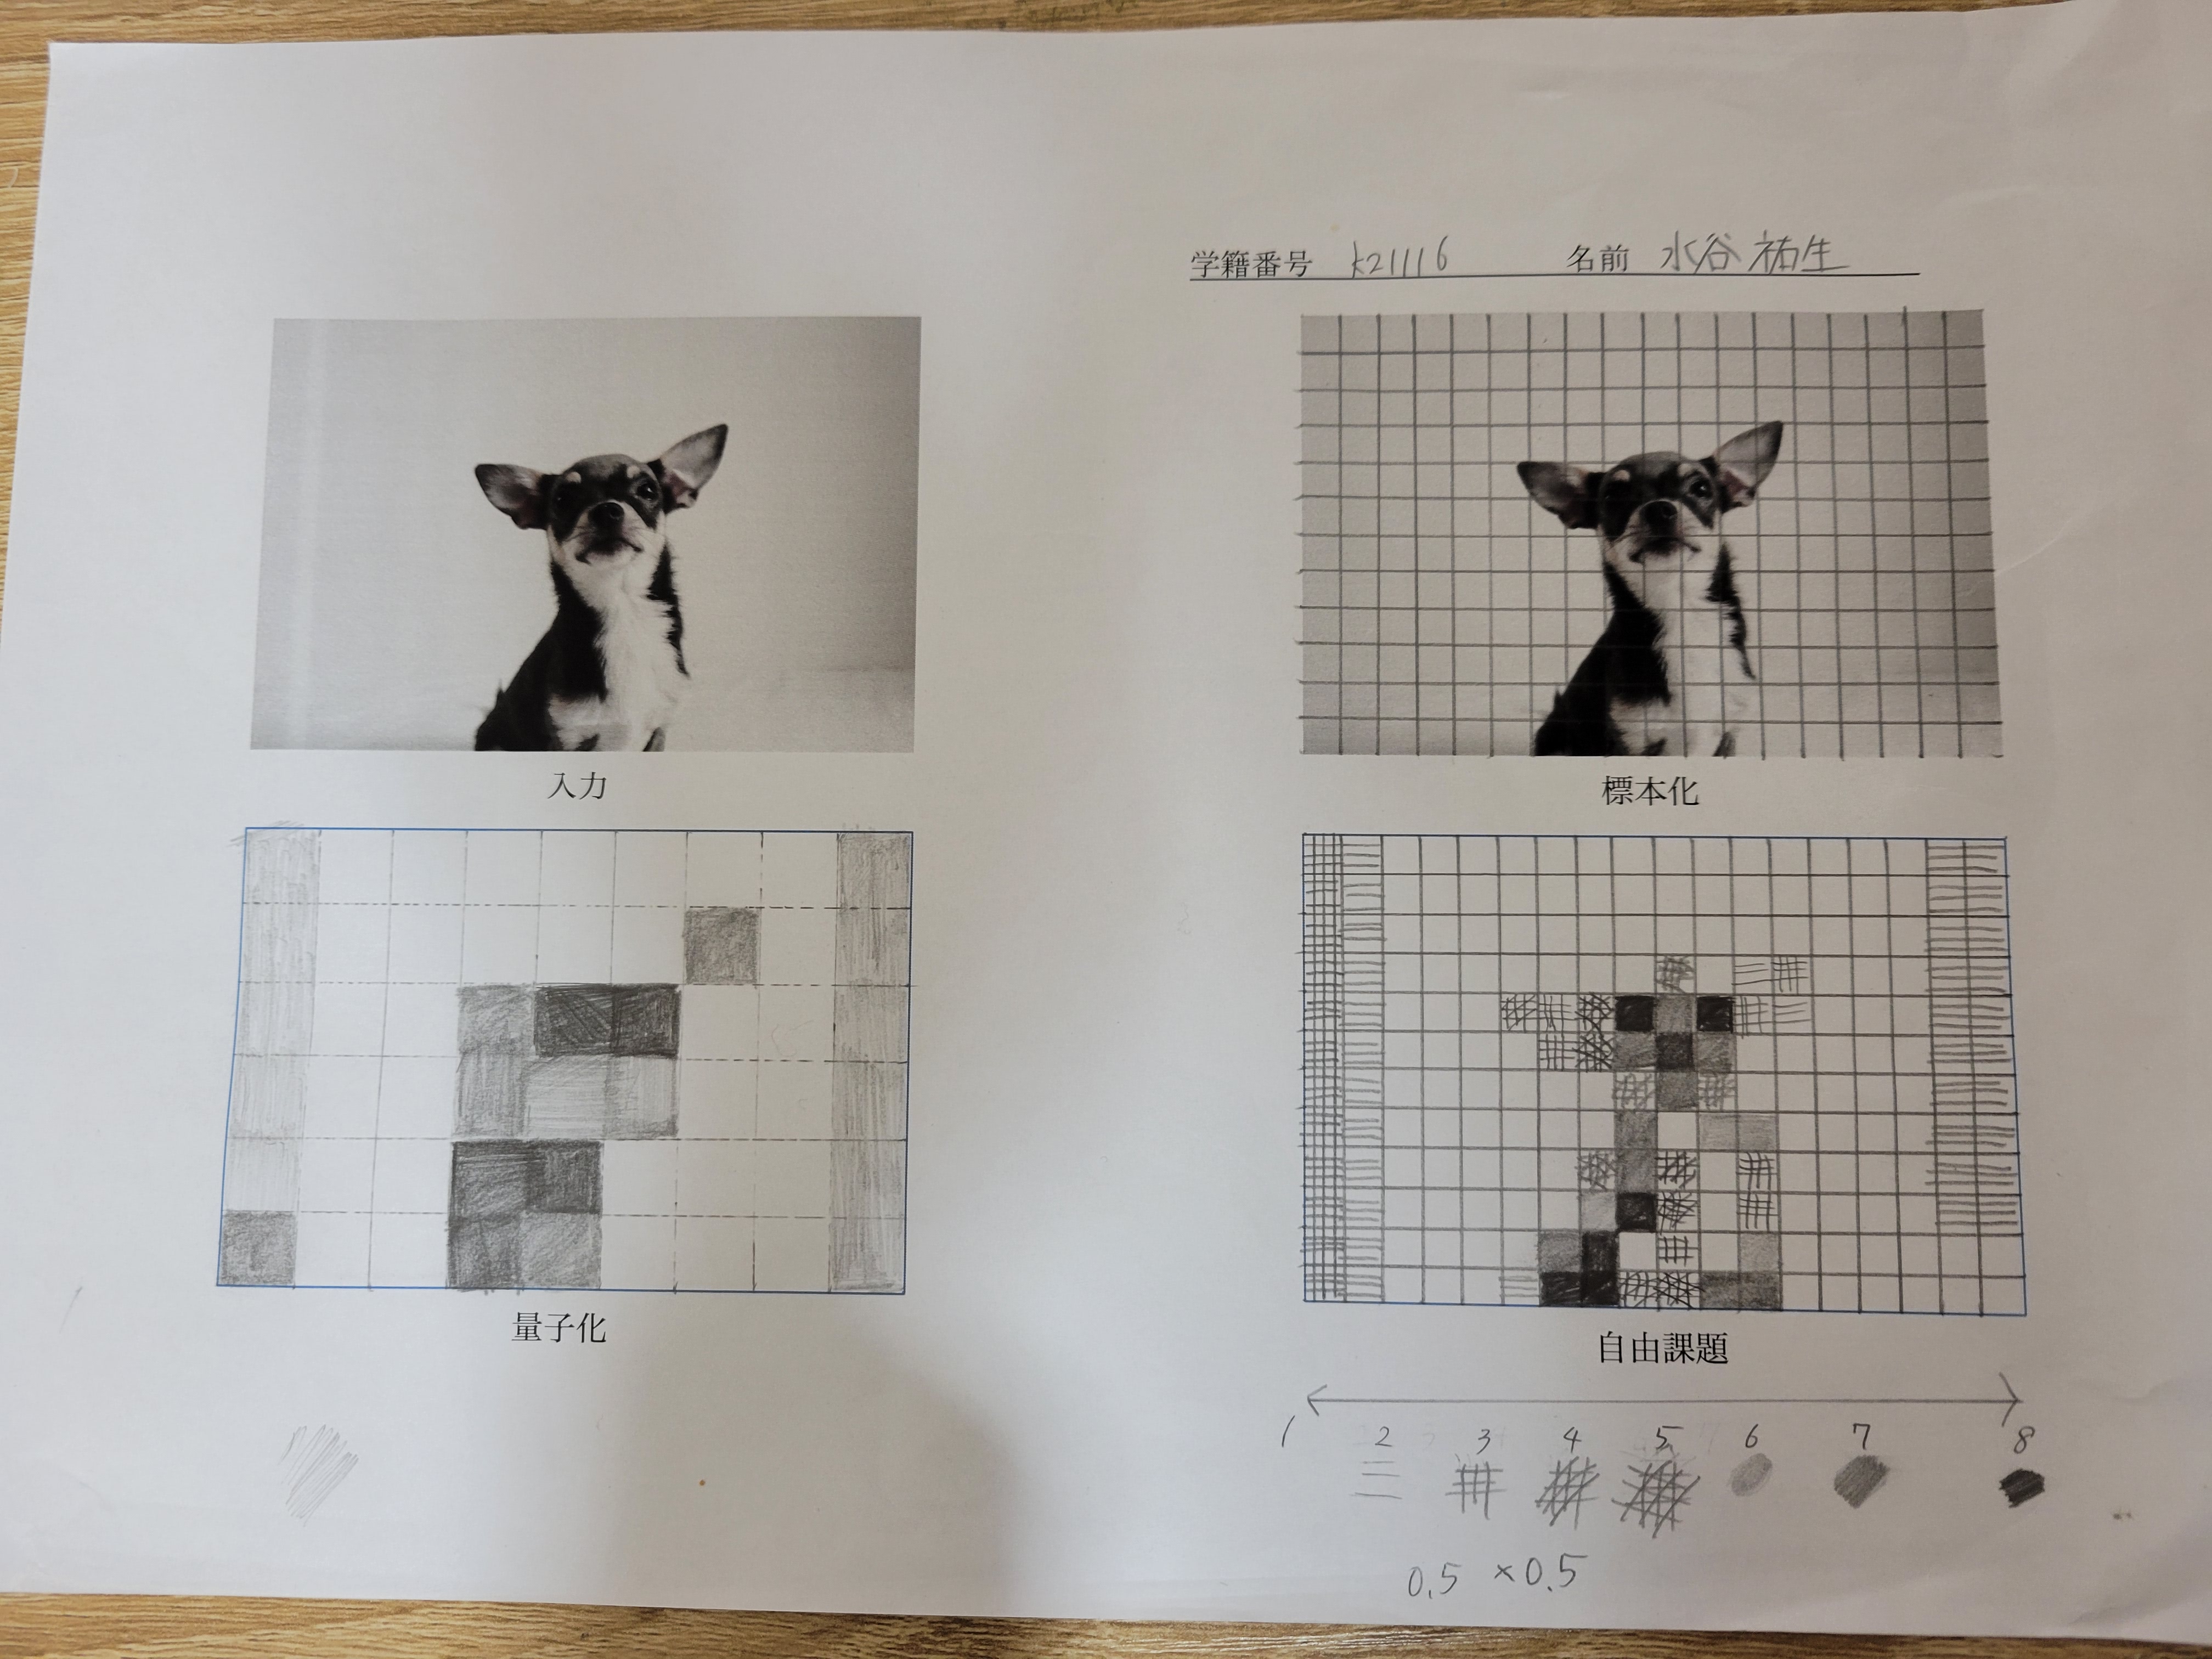 学籍番号 k21116 名前 水谷 祐生
入力
標本化
量子化
自由課題
1 2 3 4 5 6 7 8
0.5 × 0.5